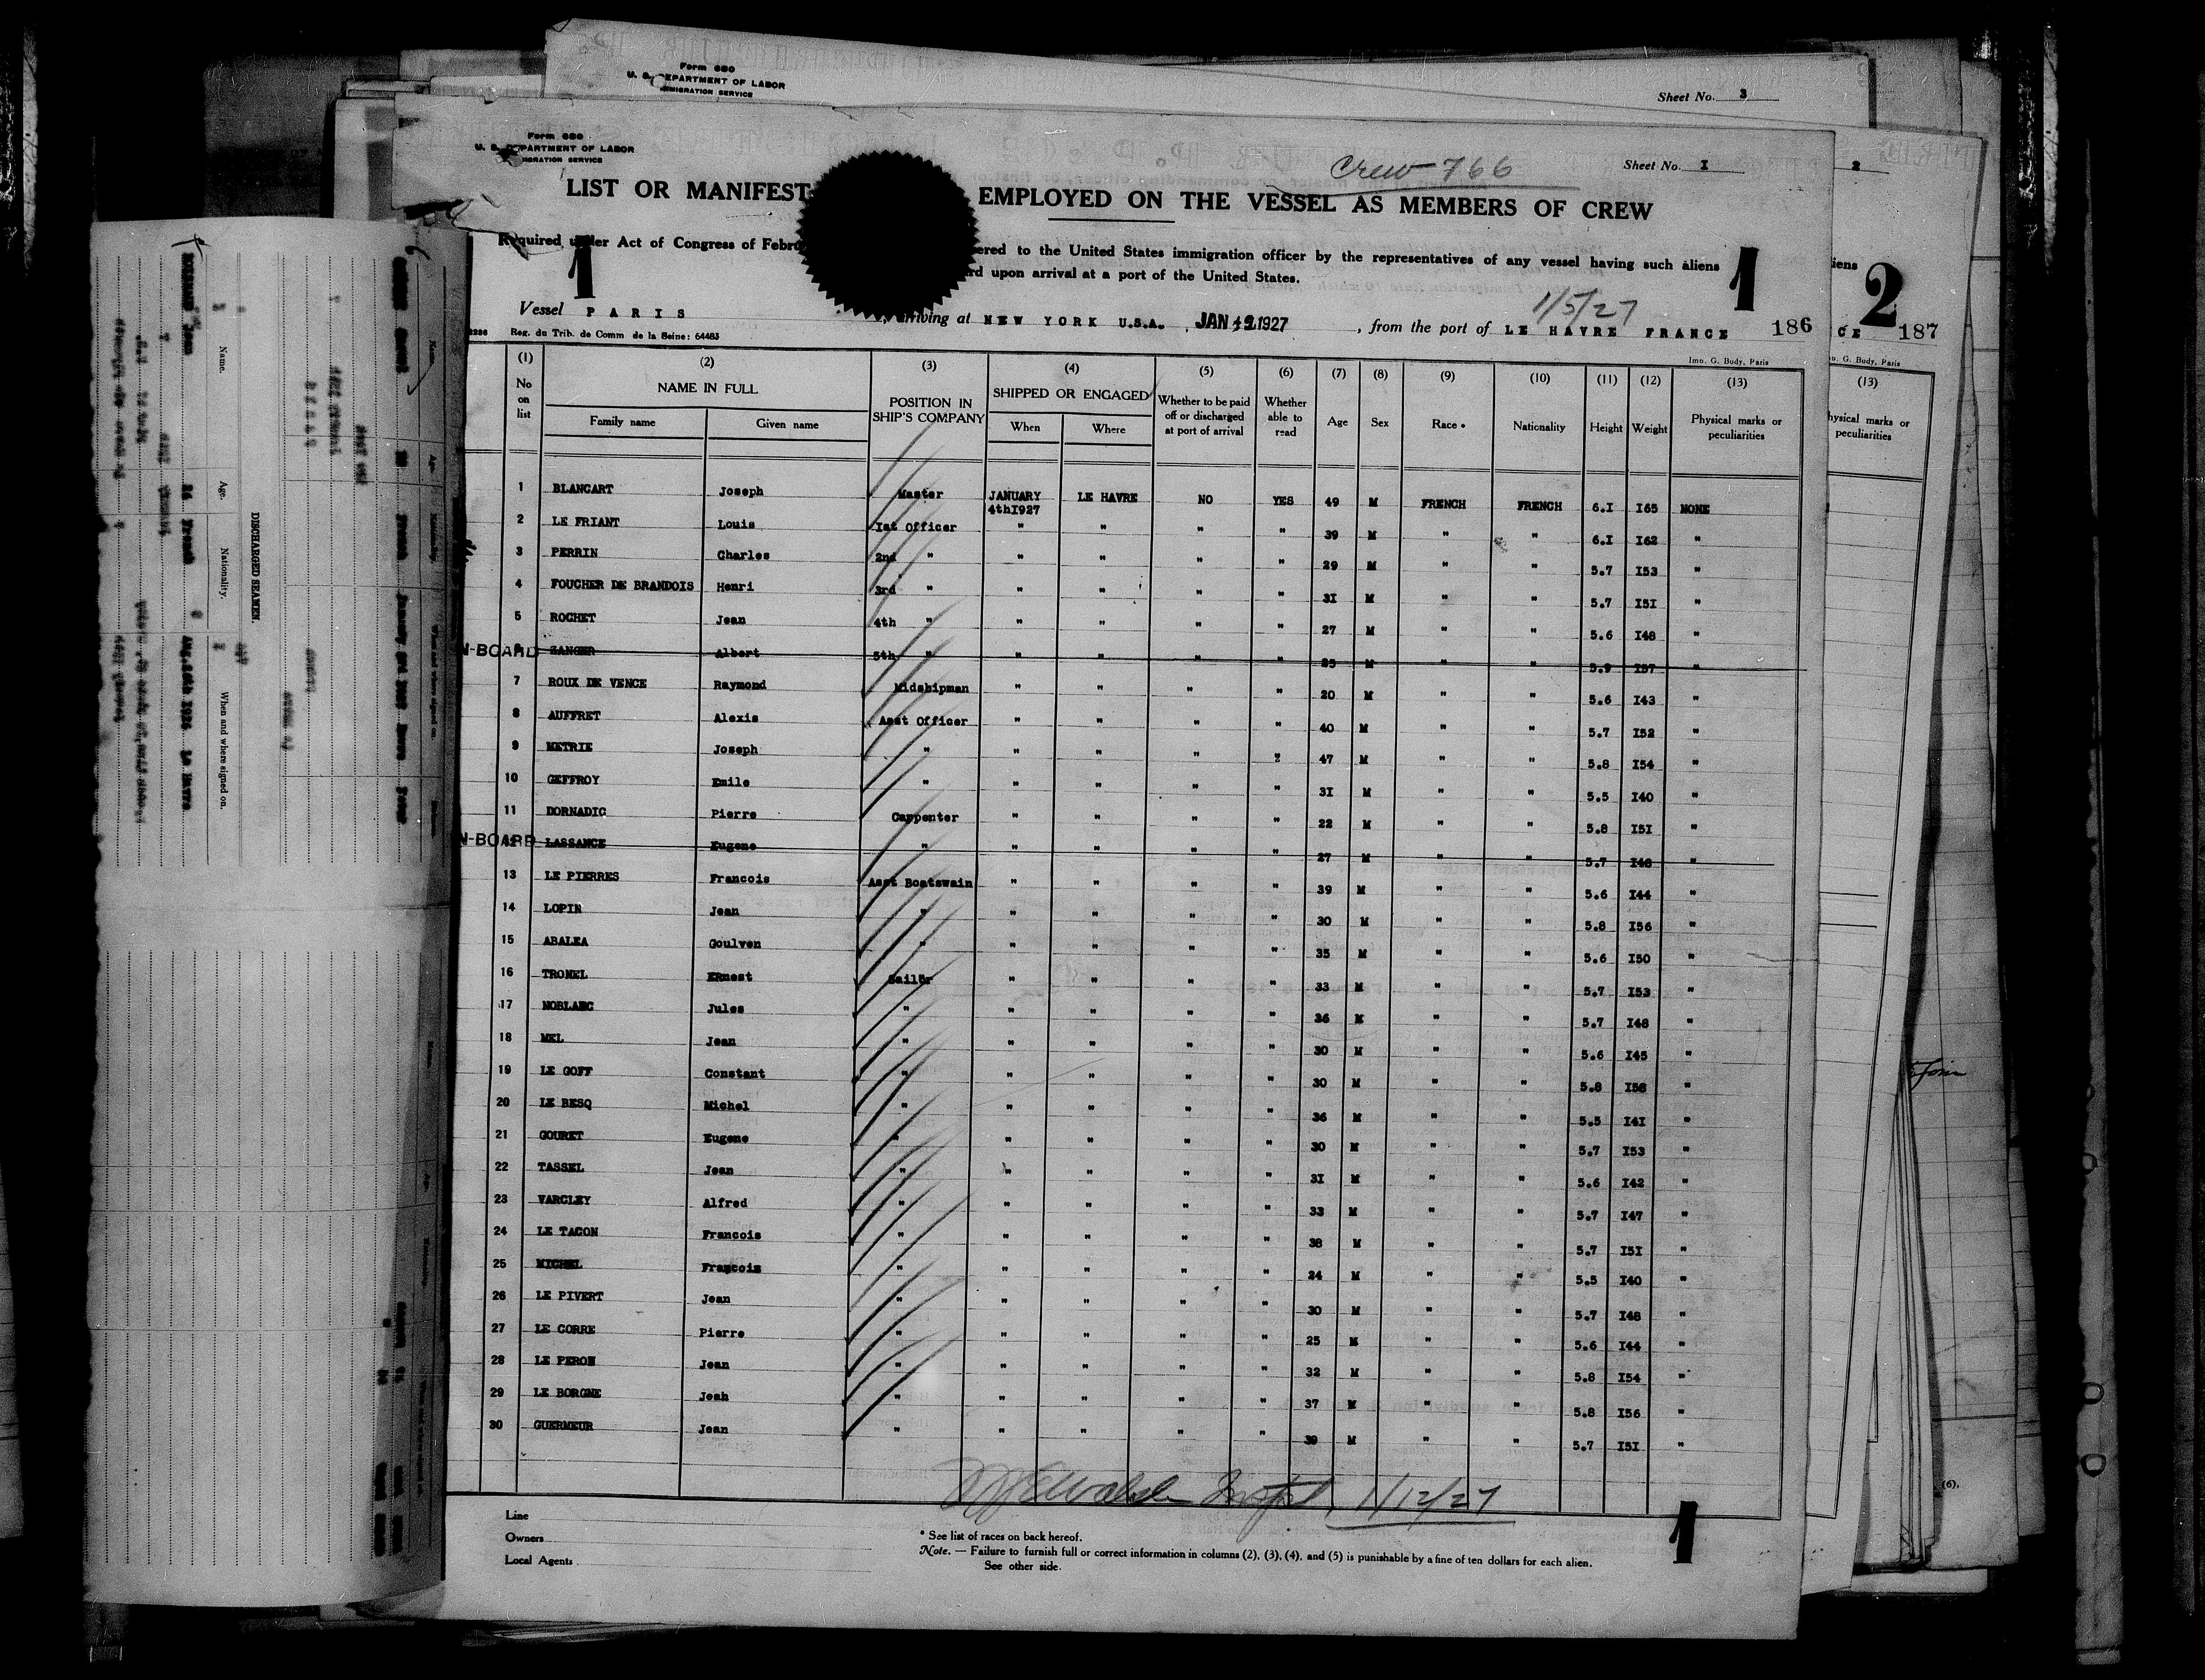 Form 680
U. S. DEPARTMENT OF LABOR
IMMIGRATION SERVICE
Sheet No. 3
Form 680
U. S. DEPARTMENT OF LABOR
MIGRATION SERVICE
Crew 766
Sheet No. I
2
LIST OR MANIFEST EMPLOYED ON THE VESSEL AS MEMBERS OF CREW
Required under Act of Congress of Febru ered to the United States immigration officer by the representatives of any vessel having such aliens
rd upon arrival at a port of the United States.
1
1
iens
2
1/5/27
Vessel PARIS arriving at NEW YORK U.S.A., JAN 12 1927, from the port of LE HAVRE FRANCE 186
CE 187
2286 Reg. du Trib. de Comm de la Seine: 64483
Imp. G. Budy, Paris
p. G. Budy, Paris
(1) (2) (3) (4) (5) (6) (7) (8) (9) (10) (11) (12) (13)
(13)
No on list NAME IN FULL POSITION IN SHIP'S COMPANY SHIPPED OR ENGAGED Whether to be paid off or discharged at port of arrival Whether able to read Age Sex Race * Nationality Height Weight Physical marks or peculiarities
hysical marks or peculiarities
Family name Given name When Where
1 BLANCART Joseph Master JANUARY 4thI927 LE HAVRE NO YES 49 M FRENCH FRENCH 6.I I65 NONE
2 LE FRIANT Louis Ist Officer " " " " 39 M " " 6.I I62 "
3 PERRIN Charles 2nd " " " " " 29 M " " 5.7 I53 "
4 FOUCHER DE BRANDOIS Henri 3rd " " " " " 3I M " " 5.7 I5I "
5 ROCHET Jean 4th " " " " " 27 M " " 5.6 I48 "
N-BOARD ZANGER Albert 5th " " " " " 25 M " " 5.9 I57 "
7 ROUX DE VENCE Raymond Midshipman " " " " 20 M " " 5.6 I43 "
8 AUFFRET Alexis Asst Officer " " " " 40 M " " 5.7 I52 "
9 METRIE Joseph " " " " " 47 M " " 5.8 I54 "
10 GEFFROY Emile " " " " " 3I M " " 5.5 I40 "
11 DORNADIC Pierre Carpenter " " " " 22 M " " 5.8 I5I "
N-BOARD 12 LASSANCE Eugene " " " " " 27 M " " 5.7 I48 "
13 LE PIERRES Francois Asst Boatswain " " " " 39 M " " 5.6 I44 "
14 LOPIN Jean " " " " " 30 M " " 5.8 I56 "
15 ABALEA Goulven " " " " " 35 M " " 5.6 I50 "
16 TROMEL ERnest Sailor " " " " 33 M " " 5.7 I53 "
17 NOBLANC Jules " " " " " 36 M " " 5.7 I48 "
18 MEL Jean " " " " " 30 M " " 5.6 I45 "
19 LE GOFF Constant " " " " " 30 M " " 5.8 I58 "
20 LE BESQ Michel " " " " " 36 M " " 5.5 I4I "
21 GOURET Eugene " " " " " 30 M " " 5.7 I53 "
22 TASSEL Jean " " " " " 3I M " " 5.6 I42 "
23 VARCLEY Alfred " " " " " 33 M " " 5.7 I47 "
24 LE TACON Francois " " " " " 38 M " " 5.7 I5I "
25 MICHEL Francois " " " " " 24 M " " 5.5 I40 "
26 LE PIVERT Jean " " " " " 30 M " " 5.7 I48 "
27 LE CORRE Pierre " " " " " 25 M " " 5.6 I44 "
28 LE PERON Jean " " " " " 32 M " " 5.8 I54 "
29 LE BORGNE Jean " " " " " 37 M " " 5.8 I56 "
30 GUERMEUR Jean " " " " " 39 M " " 5.7 I5I "
1/12/27
Line
Owners
Local Agents
* See list of races on back hereof.
Note. — Failure to furnish full or correct information in columns (2), (3), (4), and (5) is punishable by a fine of ten dollars for each alien.
See other side.
1
(6),
DISCHARGED SEAMEN.
Name. Age. Nationality. When and where signed on.
Jean 24 French Aug. 1926 Le Havre